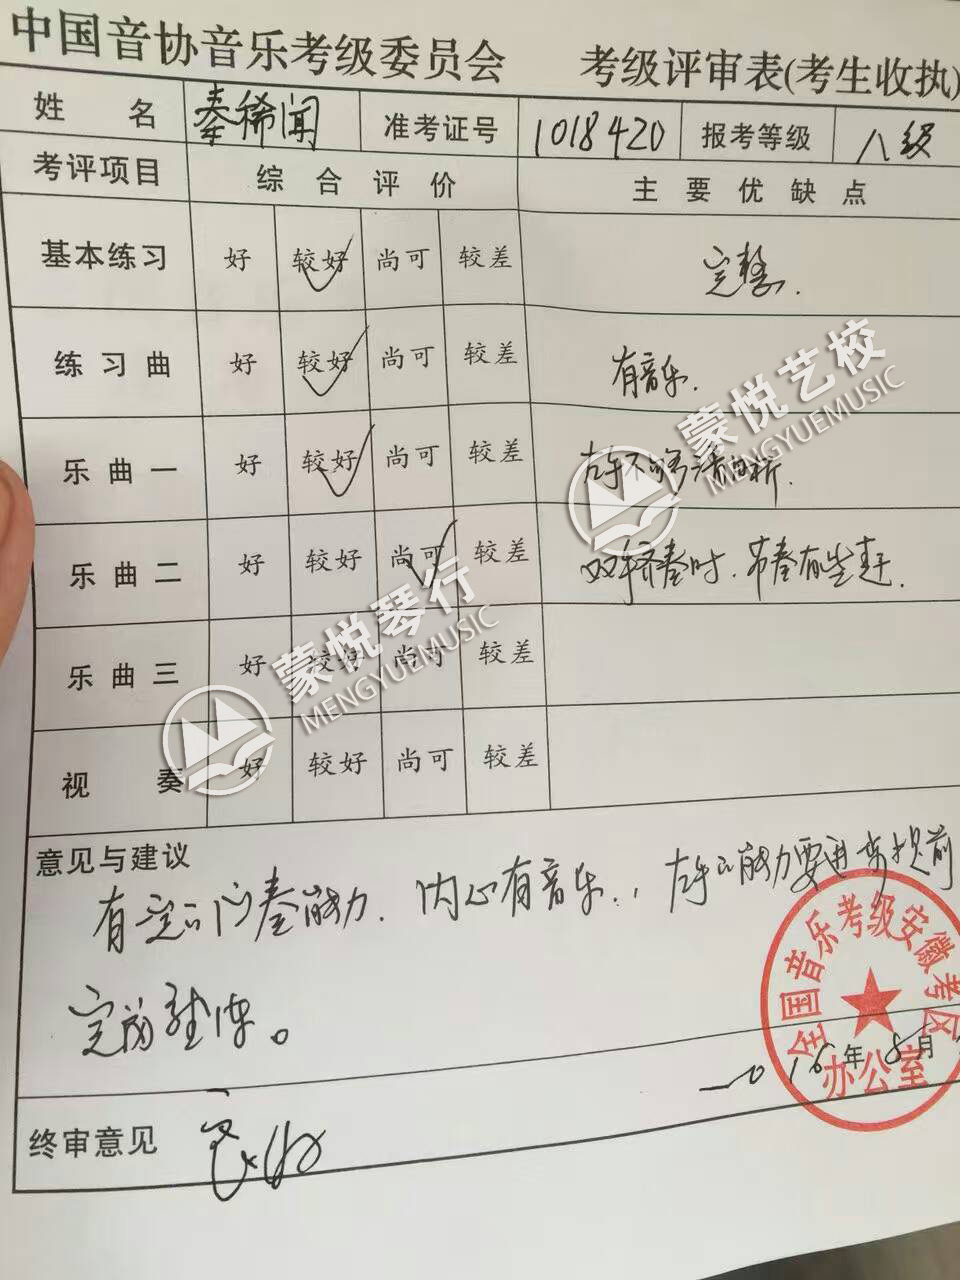 中国音协音乐考级委员会 考级评审表(考生收执)
姓 名 秦稀闻 准考证号 1018420 报考等级 八级
考评项目 综合评价 主要优缺点
基本练习 好 较好 尚可 较差 完整.
练习曲 好 较好 尚可 较差 有音乐.
乐曲一 好 较好 尚可 较差 左手不够清晰.
乐曲二 好 较好 尚可 较差 双手齐奏时.节奏有些赶.
乐曲三 好 较好 尚可 较差
视 奏 好 较好 尚可 较差
蒙悦艺校
MENGYUEMUSIC
蒙悦琴行
MENGYUEMUSIC
意见与建议
有一定的演奏能力.内心有音乐.,左手的能力要进步提前
全国音乐考级安徽考区
办公室
2016年8月
终审意见